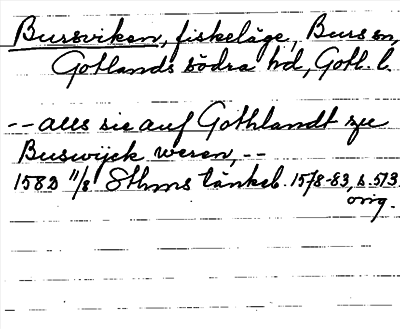 Bursviken, fiskeläge, Burs sn,
Gotlands södra hd, Gotl. l.
-- alls sie auf Gothlandt zu
Buswijck weren, --
1582 11/8 Sthms tänkeb. 1578-83, s. 513.
orig.